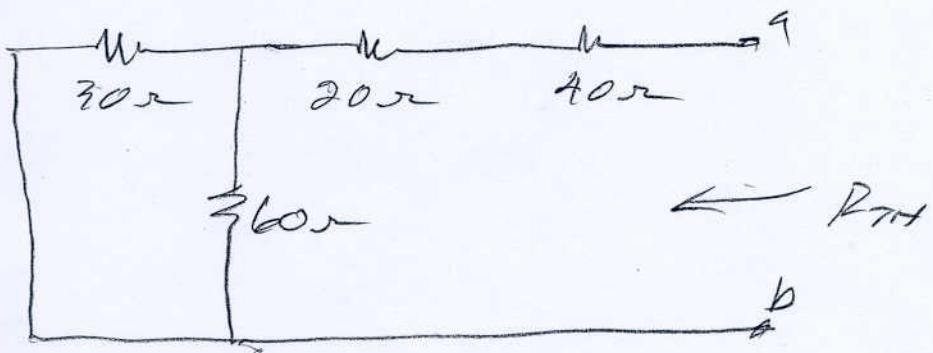 a
30Ω 20Ω 40Ω
60Ω
R_TH
b